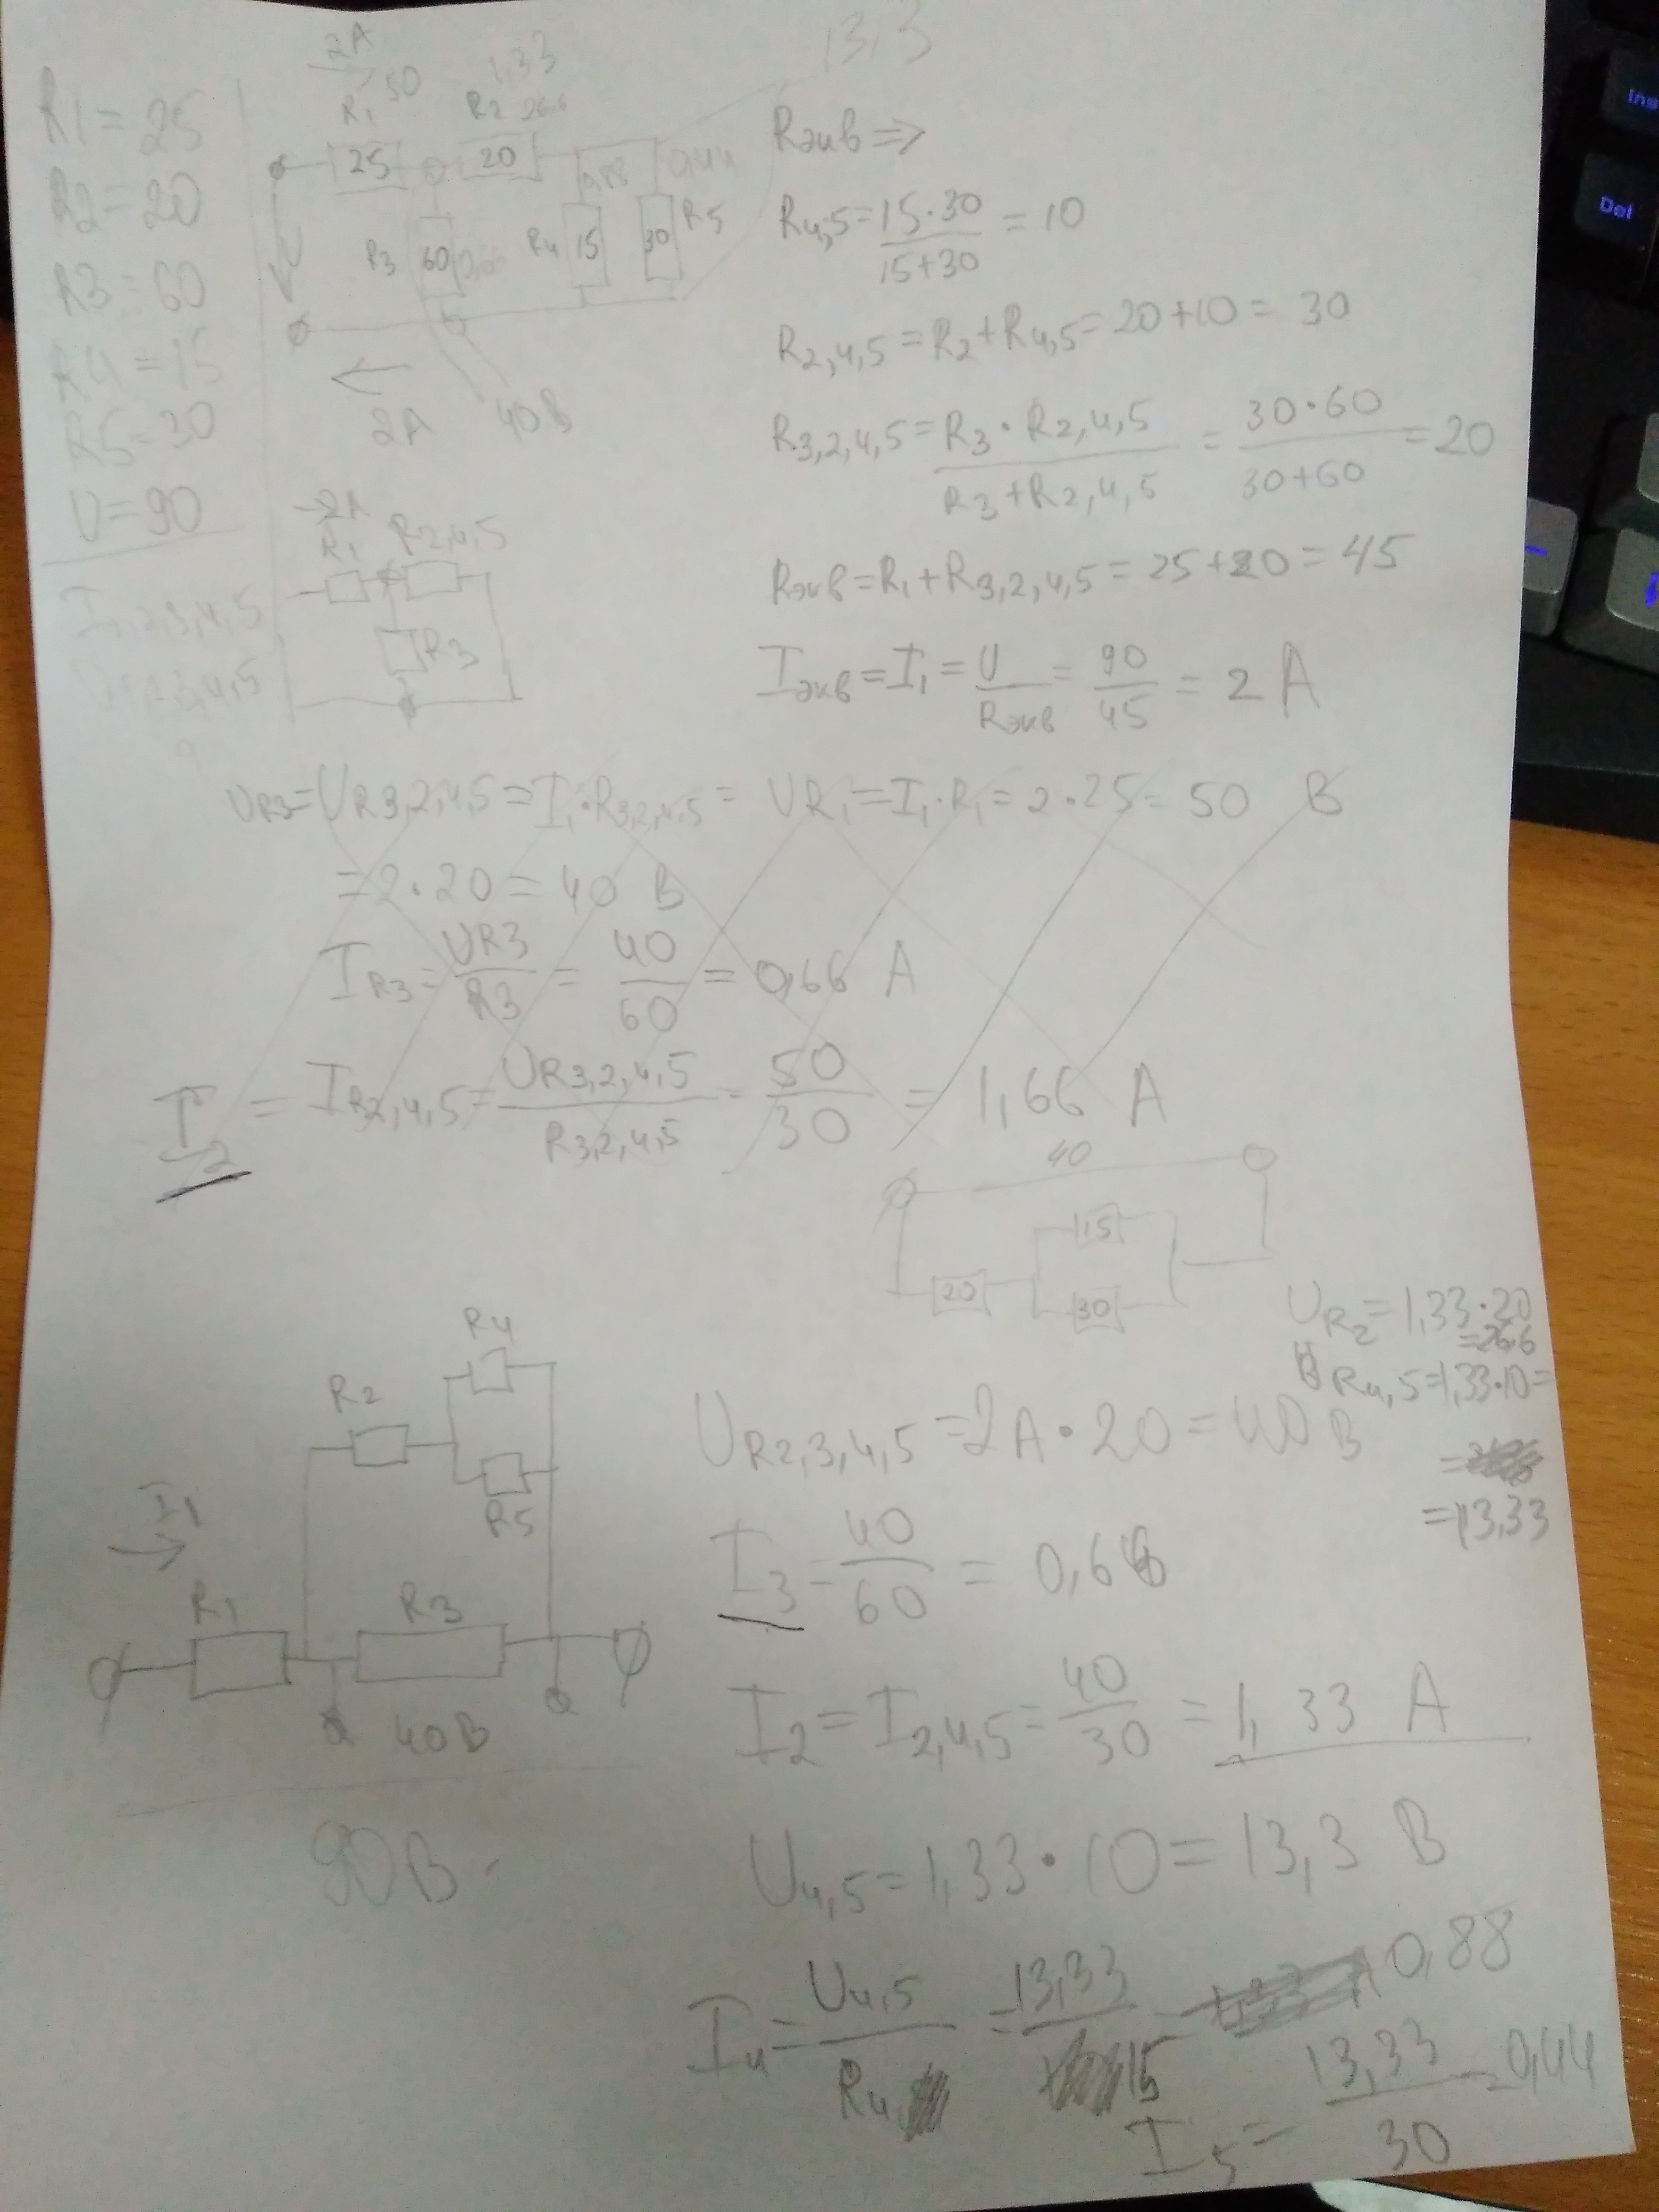 R1=25
R2=20
R3=60
R4=15
R5=30
U=90
I1,2,3,4,5
2,3,4,5
?
2A
50
1,33
13,3
R1
R2 26.6
25
20
0,88
0,44
U
R3
60
0,66
R4
15
30
R5
2A
40В
2A
R1
R2,4,5
R3
Rэкв =>
R4,5=15·30/15+30 = 10
R2,4,5=R2+R4,5=20+10= 30
R3,2,4,5=R3·R2,4,5/R3+R2,4,5 = 30·60/30+60 =20
Rэкв=R1+R3,2,4,5=25+20=45
Iэкв=I1=U/Rэкв=90/45=2 А
UR3=UR3,2,4,5=I1·R3,2,4,5= UR1=I1·R1=2·25=50 В
=2·20=40 В
IR3=UR3/R3=40/60=0,66 А
I2 = IR2,4,5=UR3,2,4,5/R3,2,4,5=50/30=1,66 А
40
15
20
30
UR2=1,33·20
=26.6
UR4,5=1,33·10=
=13,33
R4
R2
R5
I1
R1
R3
40В
90В
UR2,3,4,5=2А·20=40В
I3=40/60=0,66
I2=I2,4,5=40/30=1,33 А
U4,5=1,33·10=13,3 В
I4=U4,5/R4=13,33/15 0,88
I5=13,33/30=0,44
Ins
Del